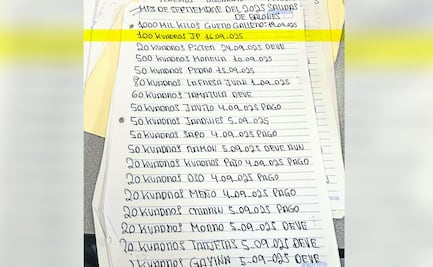 MES DE SEPTIEMBRE DEL 2025 SALIDAS
DE ERONES
1000 MIL KILOS GUERO GALLERO 14.09.025
100 KUADROS JP 16.09.025
20 KUADROS PICTER 24.09.025 DEVE
500 KUADROS MORELIA 10.09.025
50 KUADROS PEDRO 15.09.025
80 KUADROS LA FRESA JUAN 1.09.025
60 KUADROS TAMAZULA DEVE
50 KUADROS JAVITO 4.09.025 PAGO
50 KUADROS JANQUIES 5.09.025
50 KUADROS SAPO 4.09.025 PAGO
50 KUADROS RAMON 5.09.025 DEVE AUN
20 KUADROS KUADROS PATO 4.09.025 PAGO
20 KUADROS OSO 4.09.025 PAGO
20 KUADROS MEÑO 4.09.025 PAGO
20 KUADROS CHIMIN 5.09.025 PAGO
20 KUADROS MORRO 5.09.025 DEVE
20 KUADROS TARJETAS 5.09.025 DEVE
KUADROS GAVINA 5-09-025 DEVE